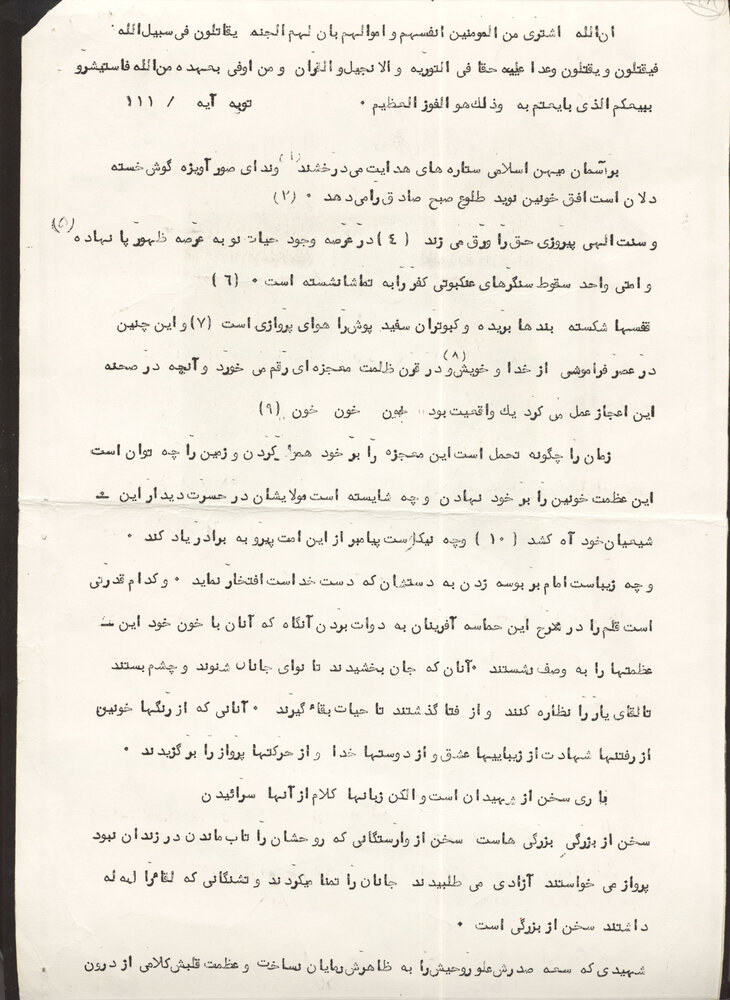 ان‌الله اشتری من المومنین انفسهم و اموالهم بان لهم الجنه یقاتلون فی سبیل‌الله
فیقتلون و یقتلون وعدا علیه حقا فی التوریه و الانجیل و القران و من اوفی بعهده من‌الله فاستیشرو
ببیعکم الذی بایعتم به وذلك‌هو الفوز العظیم ۰ توبه آیه / ۱۱۱
برآسمان میهن اسلامی ستاره های هدایت می‌درخشند (۱) وندای صور آویزه گوش خسته
دلان است افق خونین نوید طلوع صبح صادق را می‌دهد ۰ (۲)
و سنت الهی پیروزی حق را ورق می زند (٤) در عرصه وجود حیات نو به عرصه ظهور پا نهاده (۵)
و امتی واحد سقوط سنگرهای عنکبوتی کفر را به تماشانشسته است ۰ (٦)
قفسها شکسته بندها بریده و کبوتران سفید پوش را هوای پروازی است (۷) و این چنین
در عصر فراموشی از خدا و خویش (۸) و در قرن ظلمت معجزه ای رقم می خورد و آنچه در صحنه
این اعجاز عمل می کرد یك واقعیت بود خون خون خون (۹)
زمان را چگونه تحمل است این معجزه را بر خود همراه کردن و زمین را چه توان است
این عظمت خونین را بر خود نهادن و چه شایسته است مولایشان در حسرت دیدار این ـ
شیعیان خود آه کشد (۱۰) وچه نیکوست پیامبر از این امت پیرو به برادر یاد کند ۰
و چه زیباست امام بر بوسه زدن به دستشان که دست خداست افتخار نماید ۰ و کدام قدرتی
است قلم را در شرح این حماسه آفرینان به دوات بردن آنگاه که آنان با خون خود این ـ
عظمتها را به وصف نشستند ۰ آنان که جان بخشیدند تا نوای جانان شنوند و چشم بستند
تا لقای یار را نظاره کنند و از فنا گذشتند تا حیات بقاء گیرند ۰ آنانی که از رنگها خونین
از رفتنها شهادت از زیباییها عشق و از دوستها خدا و از حرکتها پرواز را برگزیدند ۰
باری سخن از شهیدان است و الکن زبانها کلام از آنها سرائیدن
سخن از بزرگی بزرگی هاست سخن از وارستگانی که روحشان را تاب ماندن در زندان نبود
پرواز می خواستند آزادی می طلبیدند جانان را تمنا میکردند و تشنگانی که لقاء را له له
داشتند سخن از بزرگی است ۰
شهیدی که سعه صدرش علو روحیش را به ظاهرش نمایان ساخت و عظمت قلبش کلامی از درون